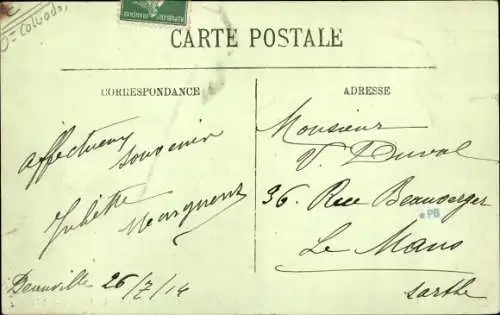 Calvados
CARTE POSTALE
CORRESPONDANCE
ADRESSE
Affectueux
souvenir
Juliette
Deauville 26/7/14
Monsieur
V. Duval
36 Rue Beauverger
PB
Le Mans
Sarthe